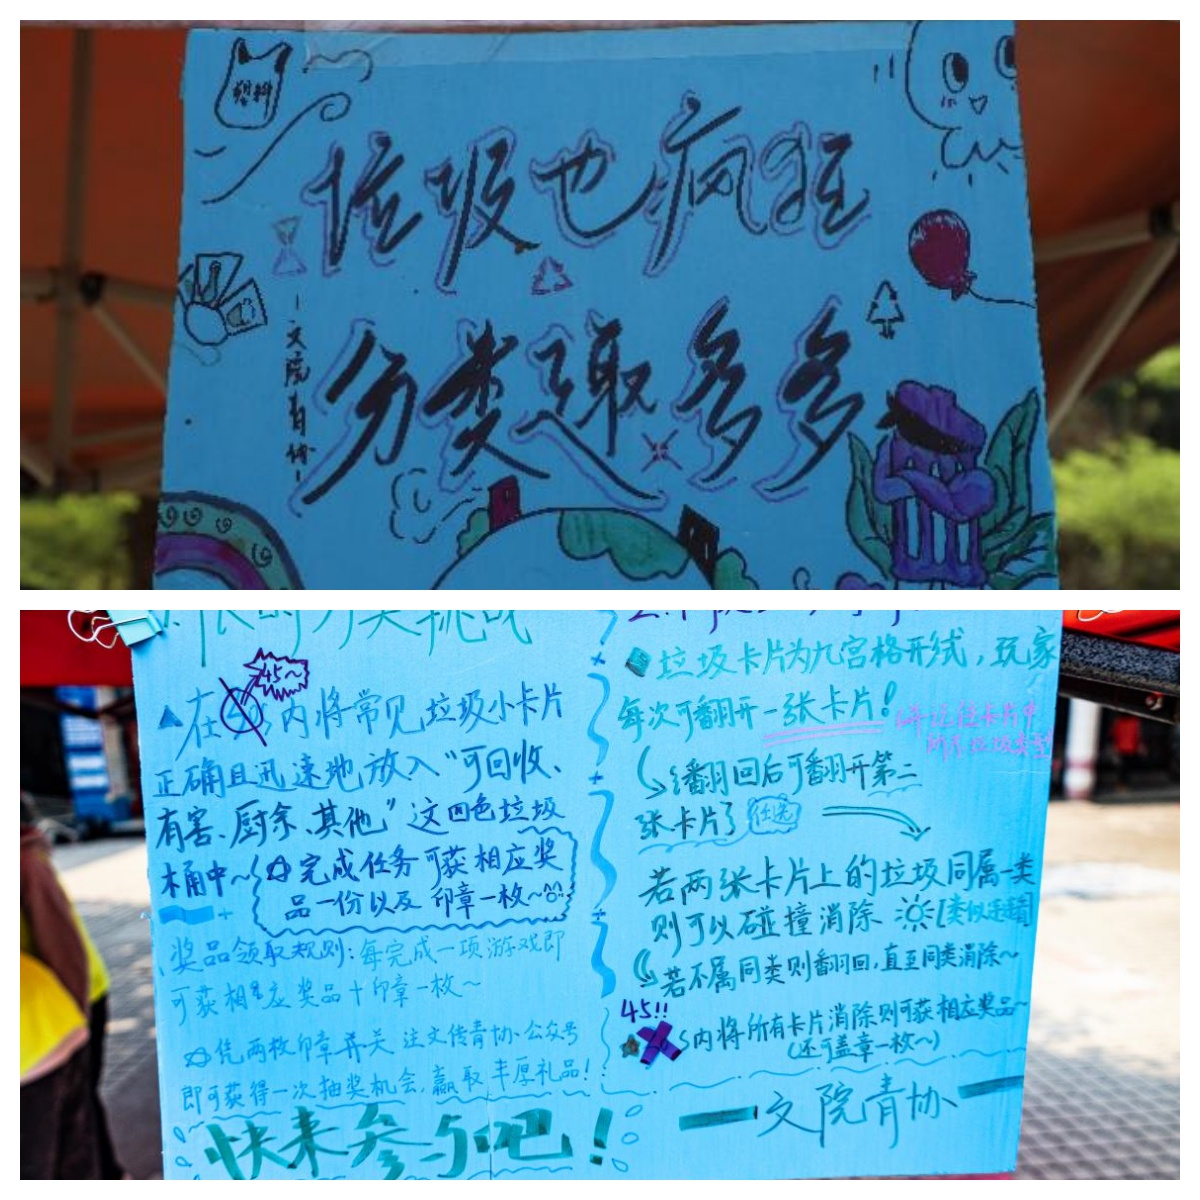 塑料
垃圾也疯狂
分类趣多多
-文院青协-
45~
▲在 s内将常见垃圾小卡片
正确且迅速地放入“可回收、
有害、厨余、其他”这四色垃圾
桶中~
完成任务可获相应奖
品一份以及印章一枚~
奖品领取规则:每完成一项游戏即
可获相应奖品+印章一枚~
凭两枚印章并关注文传青协公众号
即可获得一次抽奖机会,赢取丰厚礼品!
快来参与吧!
垃圾卡片为九宫格形式,玩家
每次可翻开一张卡片!
翻回后可翻开第二
张卡片了 任选
若两张卡片上的垃圾同属一类
则可以碰撞消除
若不属同类则翻回,直至同类消除~
45!!
s内将所有卡片消除则可获相应奖品~
(还可盖章一枚~)
—文院青协—